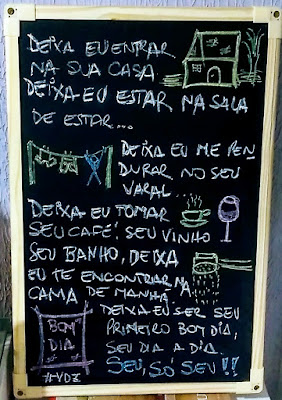 DEIXA EU ENTRAR
NA SUA CASA
DEIXA EU ESTAR NA SALA
DE ESTAR...
DEIXA EU ME PEN
DURAR NO SEU
VARAL...
DEIXA EU TOMAR
SEU CAFÉ, SEU VINHO
SEU BANHO, DEIXA
EU TE ENCONTRAR NA
CAMA DE MANHÃ
DEIXA EU SER SEU
PRIMEIRO BOM DIA,
SEU DIA A DIA.
SEU, SÓ SEU!!
BOM
DIA
#VDZ